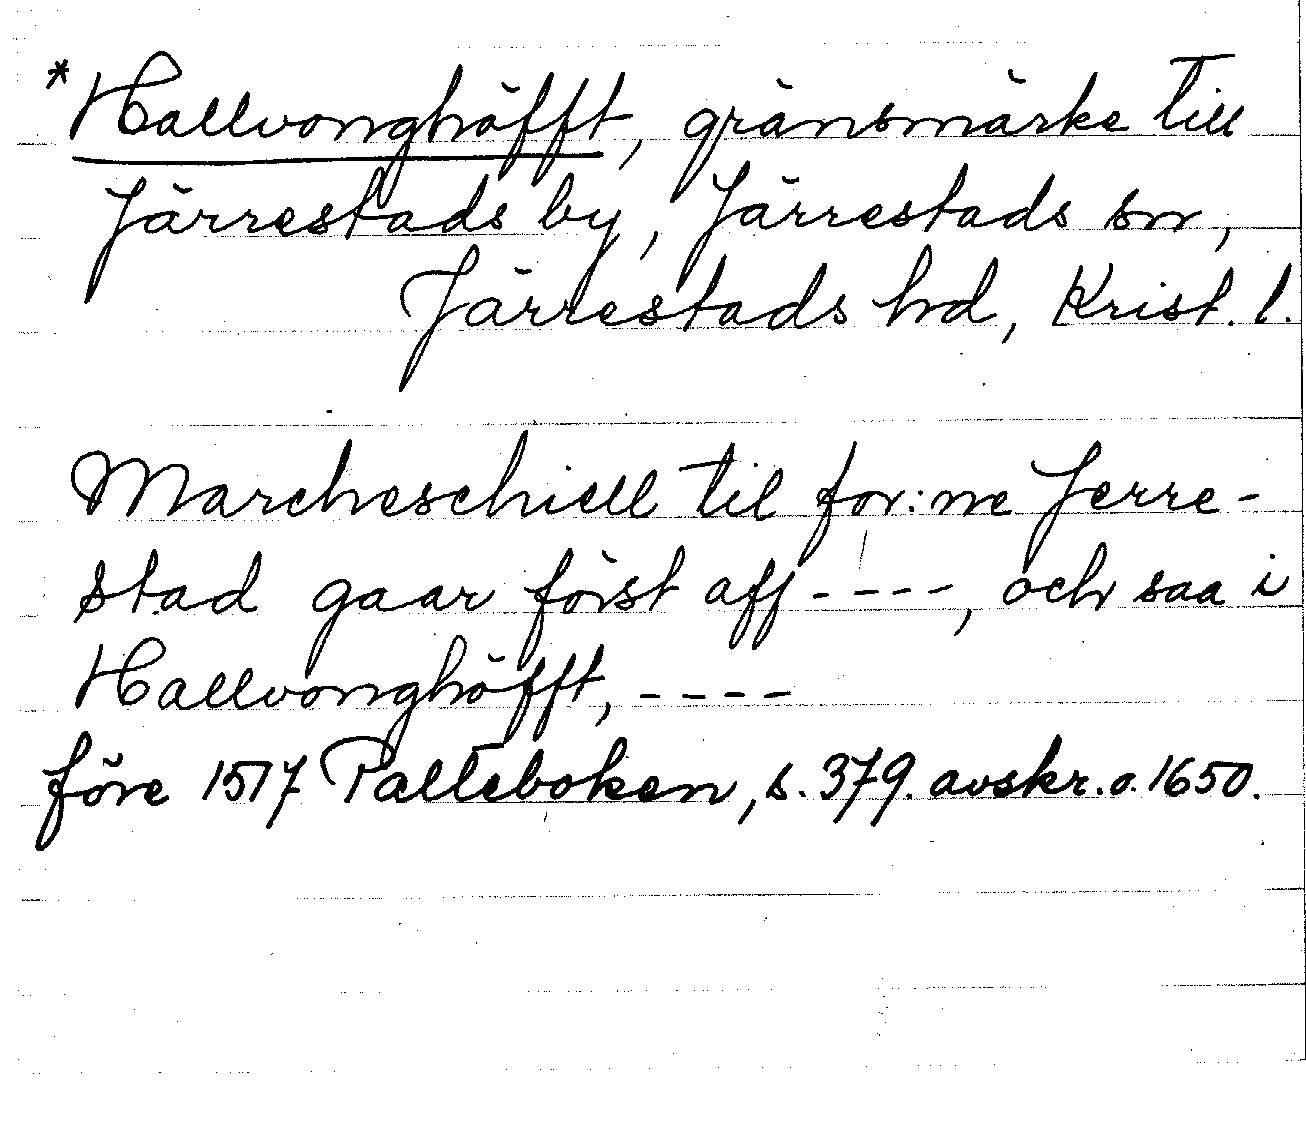 *Hallvonghöfft, gränsmärke till
Järrestads by, Järrestads sn,
Järrestads hd, Krist. l.
Marcheschiell til for:ne Jerre-
stad gaar först aff ----, och saa i
Hallvonghöfft, ----
före 1517 Palteboken, s. 379. avskr. o. 1650.